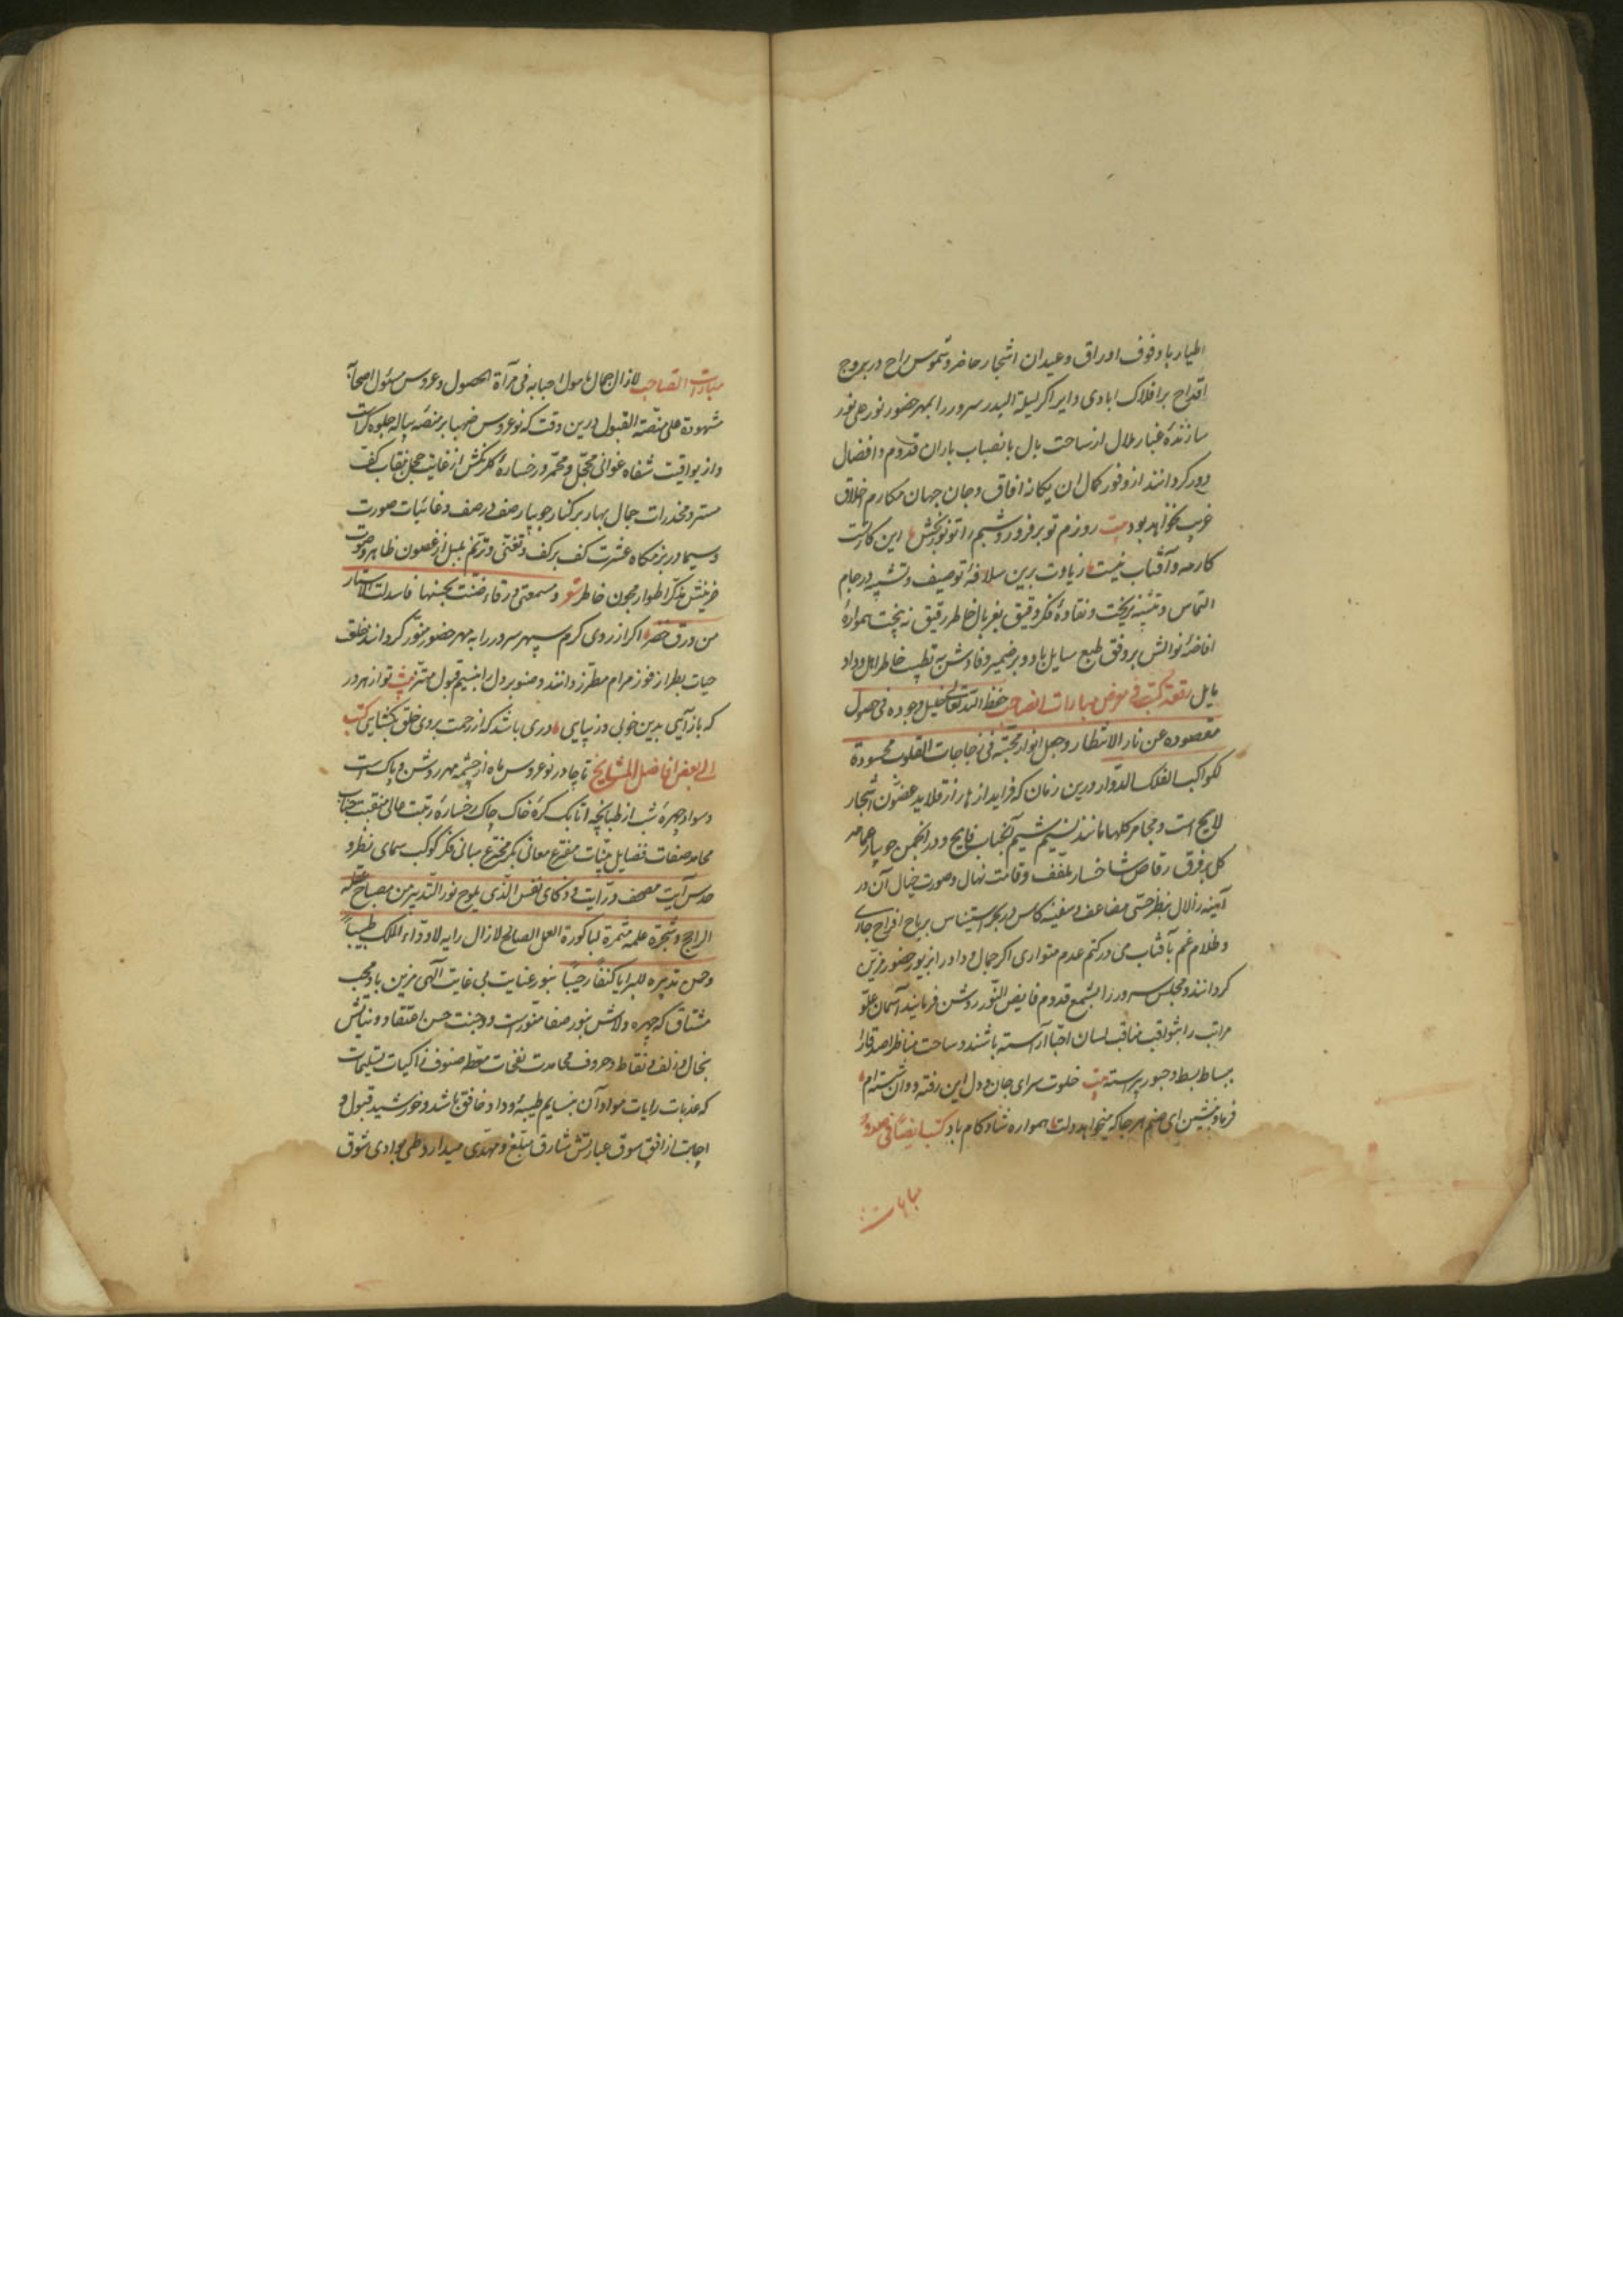 اطیار با دفوف اوراق و عیدان اشجار حاضر و شموس راح در بروج
اقداح بر افلاک ایادی دایر اکر لیلة البدر سرور را بمهر حضور نور علی نور
سازند و غبار ملال از ساحت بال بانصباب باران قدوم و افضال
دور کردانند از وفور کمال ان یکانه افاق و جان جهان مکارم اخلاق
غریب نخواهد بود بیت روزم تو برفروز و شبم را تو نور بخش این کار تست
کار مه و آفتاب نیست زیادت برین سلافهٔ توصیف و تشبیه در جام
التماس و تنبیه نریخت و نقاوهٔ فکر دقیق بغربال خاطر رقیق نه بیخت همواره
افاضهٔ نوالش بر وفق طبع سایل باد و بر ضمیر وفادش به تطییب خاطر اهل وداد
مایل رقعة کتبت فی معرض مبارات الصاحب حفظ الله تعالی خلیل وجوده فی حصول
مقصوده عن نار الانتظار و جعل انوار محبته فی زجاجات القلوب محسودة
لکواکب الفلک الدوار درین زمان که فراید ازهار از قلاید غصون اشجار
لایح است و مجامر کلها مانند نسیم شمیم آنجناب فایح و در انجمن جویبار عمامه
کل بر فرق رقاص شاخسار ملفف و قامت نهال و صورت خیال آن در
آینه زلال بنظر حسی مضاعف و سفینهٔ کاس در بحر استیناس بریاح افراح جاری
و ظلام غم بآفتاب می در کتم عدم متواری اکر جمال وداد را بزیور حضور مزین
کردانند و مجلس سرور را بشمع قدوم فایض النور روشن فرمایند آسمان علو
مراتب را بثواقب مناقب لسان احبا آراسته باشند و ساحت مناظر اصدقا را
ببساط بسط و حبور پیراسته بیت خلوت سرای جان و دل این رفته و وان شسته ام
فرما و بنشین ای صنم هر جا که میخواهد دلت همواره شاد کام باد کتب ایضا فی صدد
مبارات
مبارات الصاحب لازال جمال مامول احبابه فی مرآة الحصول و عروس مسئول اصحابه
مشهودة علی منصة القبول درین وقت که نو عروس صهبا بر منصهٔ پیاله جلوه کر است
و از یواقیت شفاه غوانی مخجل و محمر و رخسارهٔ کل رنکش از غایت خجل بنقاب کف
مستر و مخدرات جمال بهار بر کنار جویبار صف در صف و غانیات صورت
و سیما در بزمکاه عشرت کف بر کف و تغنی و ترنم بلبل از غصون ظاهر و صوت
حزینش مذکر اطوار مجون خاطر شعر و مسمعتی ورقاء ضنت بحسنها فاسدلت الاستار
من ورق خضر اکر از روی کرم سپهر سرور را به مهر حضور منور کردانند خلعت
حیات بطراز فوز مرام مطرز دانند و صنوبر دل را بنسیم قبول مهتز بیت تو از هر در
که باز آیی بدین خوبی و زیبایی دری باشد که از رحمت بروی خلق بکشایی کتب
الی بعض افاضل المشایخ تا چادر نو عروس ماه از چشمه مهر روشن و پاک است
و سواد چهره شب از طبانچه اتابک کرهٔ خاک چاک رخسارهٔ رتبت عالی منقبت جناب
محامد صفات فضایل بینات مفترع معانی بکر مخترع مبانی فکر کوکب سمای نظر و
حدس آیت مصحف درایت و ذکای نفس الذی یلوح نور التدبیر من مصباح عقله
الراجح و شجرة علمه مثمرة لباکورة العمل الصالح لازال رایه لادواء الملک طبیبا
و حصن تدبیره للبرایا کنفا رحیبا بنور عنایت بی غایت الهی مزین باد محب
مشتاق که چهره ولاش بنور صفا منورست و وجنت حسن اعتقاد و نیایش
بخال و زلف نقاط و حروف محامدت نفحات معطر صنوف زاکیات تسلیمات
که عذبات رایات مواد آن بنسایم طیبهٔ وداد خافق باشد و خورشید قبول و
اجابت از افق سوق عبارتش شارق مبلغ و مهدی میدارد و طی بوادی شوق